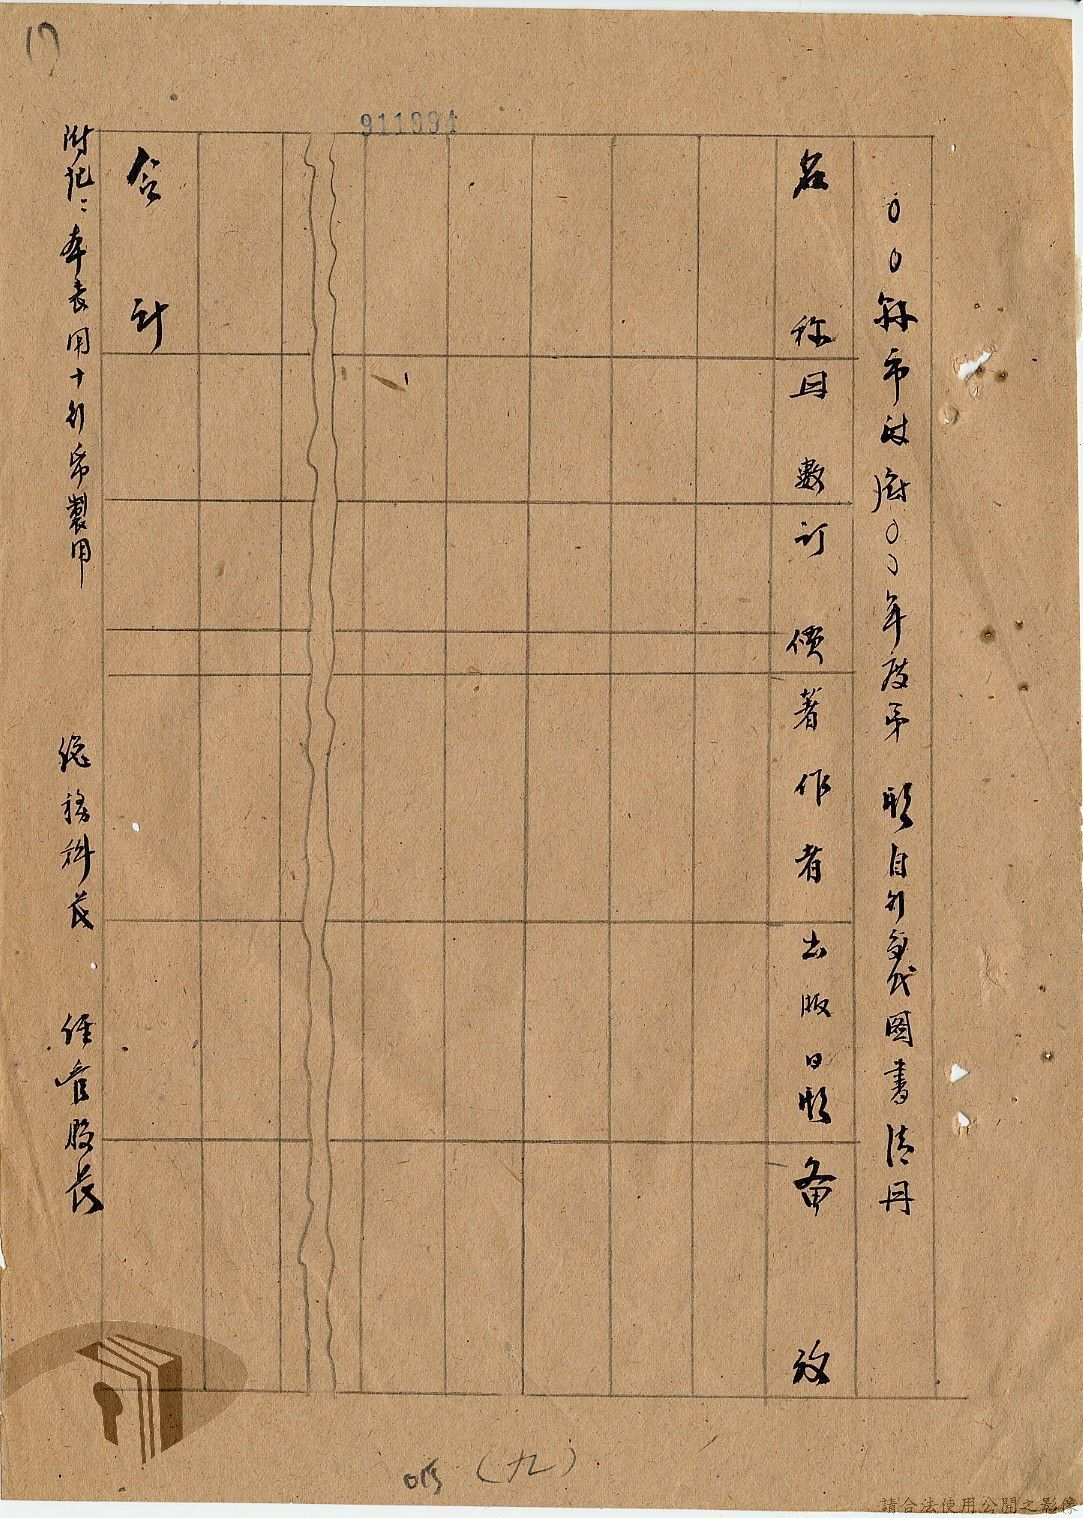 911894
〇〇縣市政府〇〇年度第　期自行募民圖書清冊
名稱
冊數
訂價
著作者
出版日期
备攷
合計
附记：本表用十行紙製用
總務科長
經管股長
(九)
請合法使用公開之影像